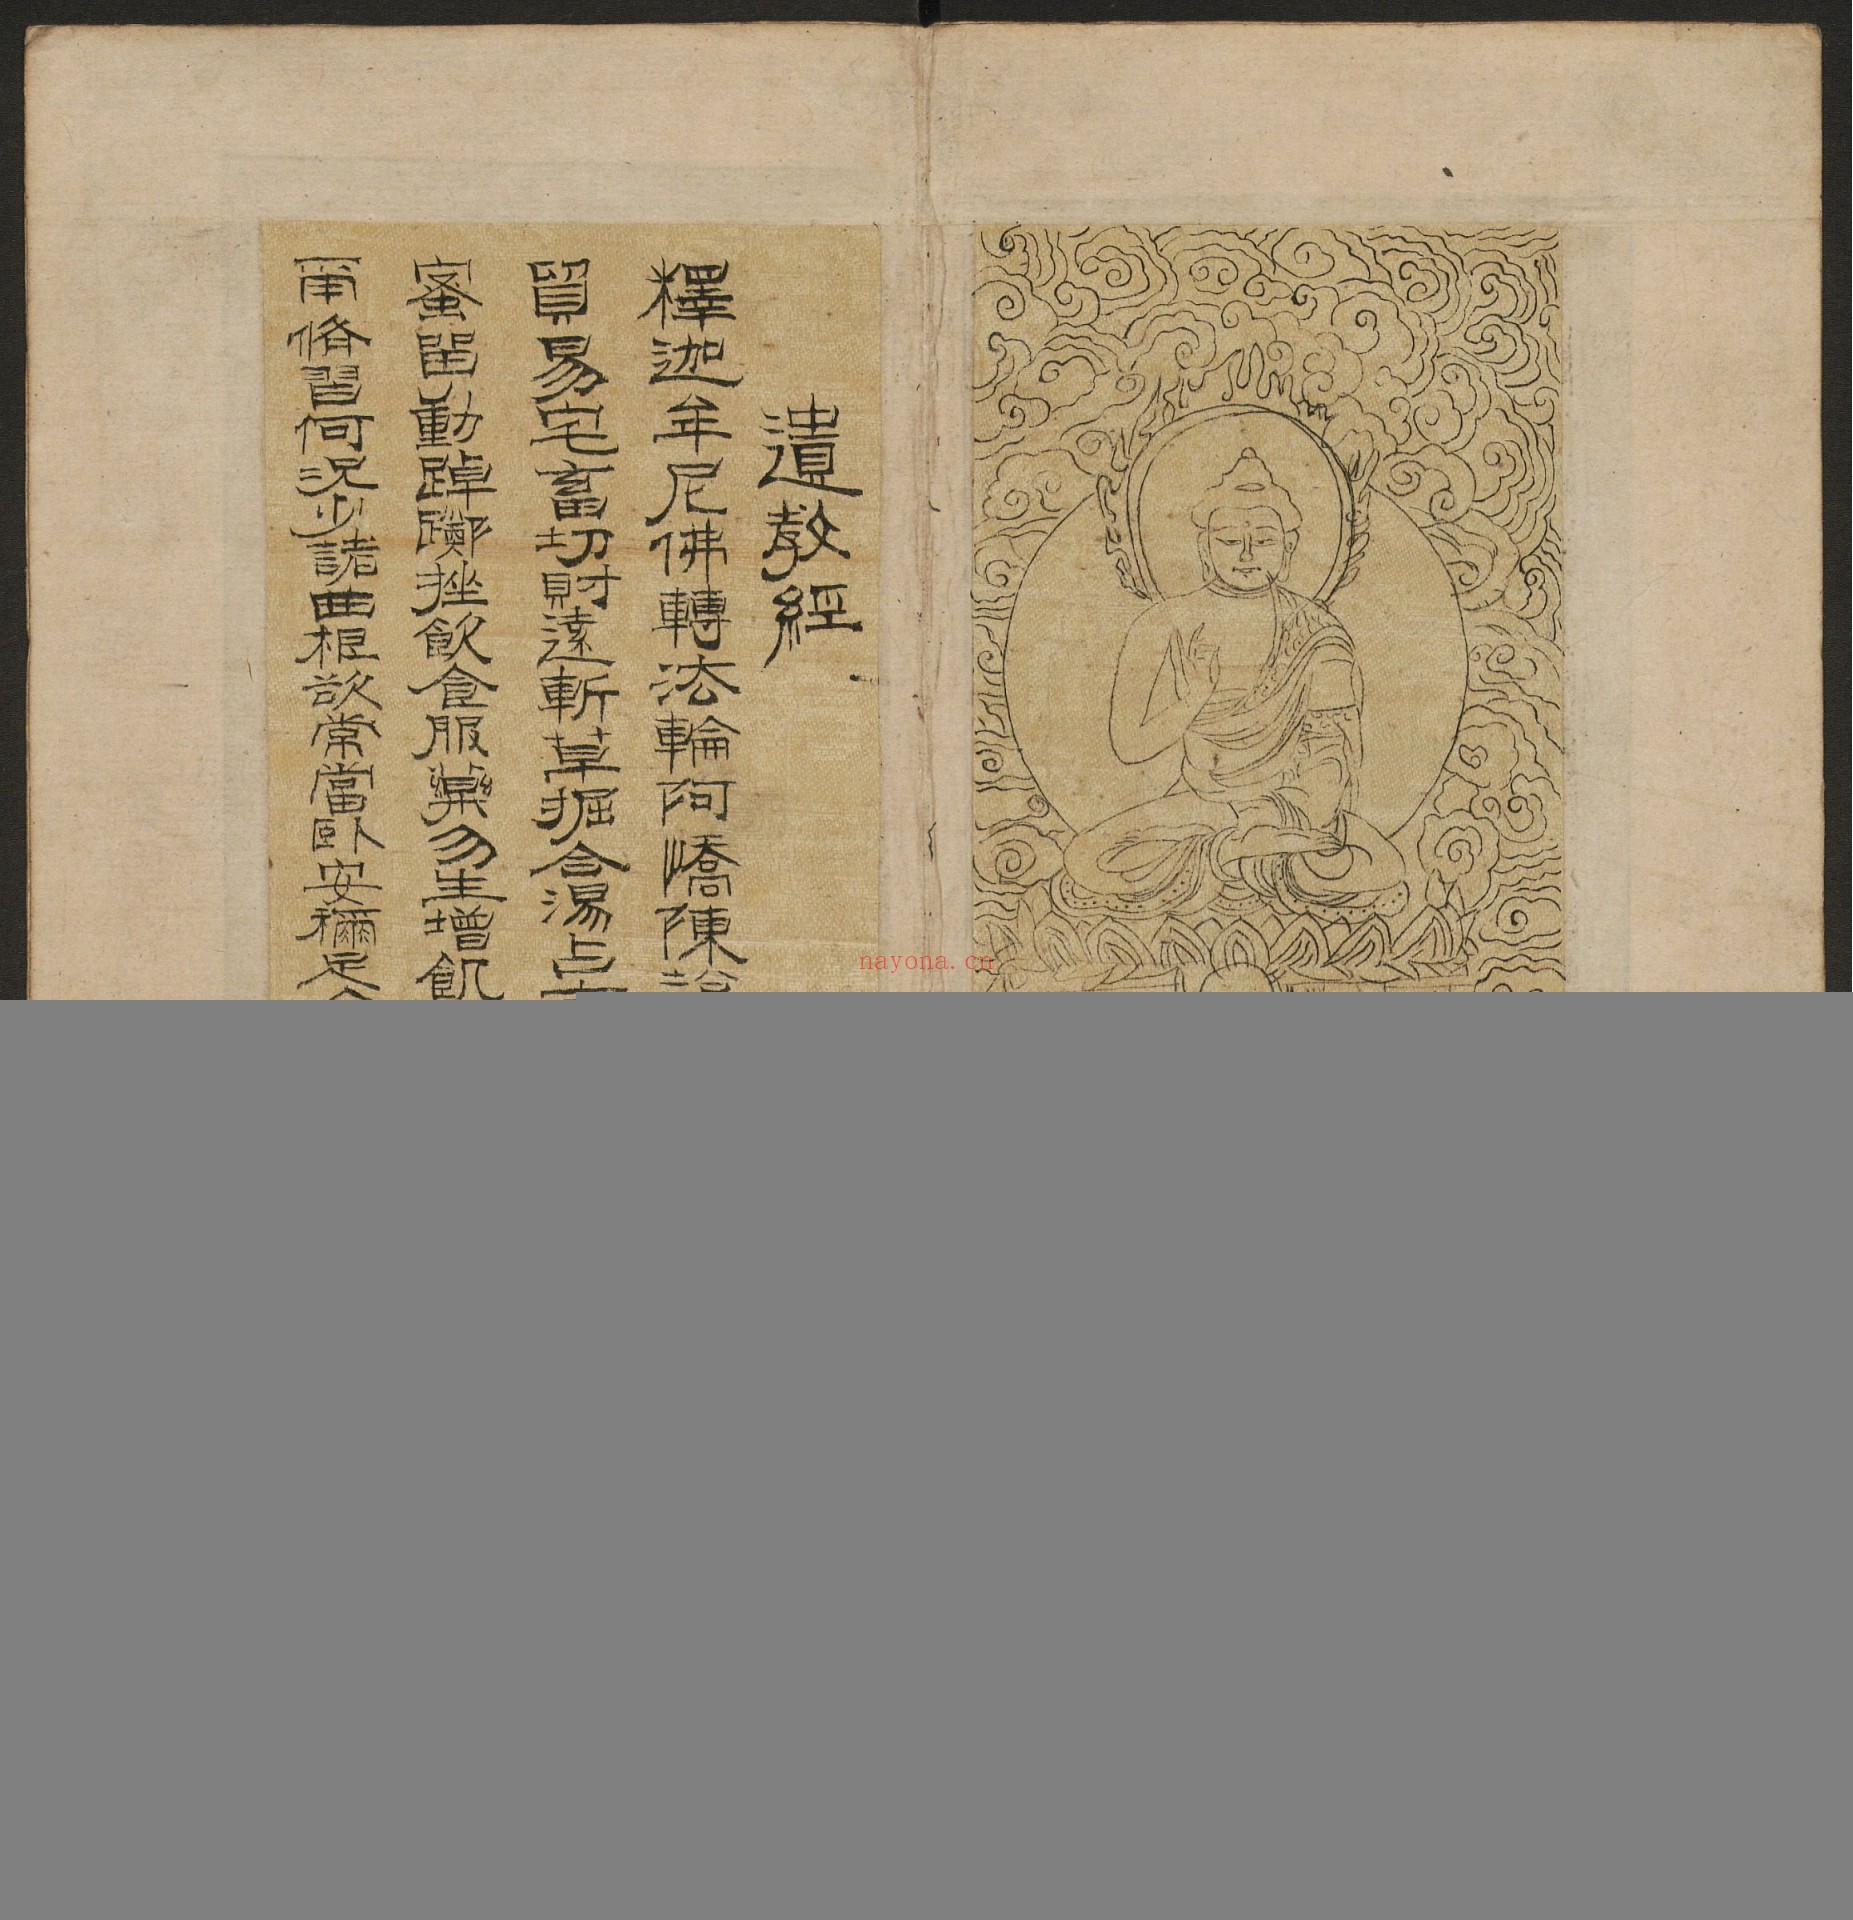 遺教經
釋迦牟尼佛轉法輪阿憍陳
貿易宅畜切財遠斬草掘合湯占
蜜動踔躑挫飲食服藥勿生增飢
修習何況少諸曲根欲常當臥安足
nayona.cn